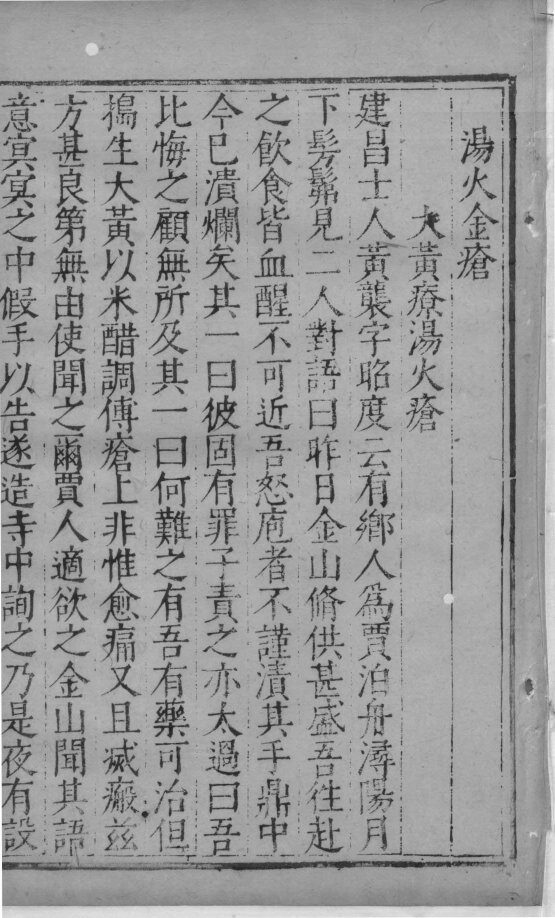 湯火金瘡
大黃療湯火瘡
建昌士人黃襲字昭度云有鄉人爲賈泊舟潯陽月
下髣髴見二人對語曰昨日金山脩供甚盛吾徃赴
之飲食皆血醒不可近吾怒庖者不謹漬其手鼎中
今巳潰爛矣其一曰彼固有罪子責之亦太過曰吾
比悔之顧無所及其一曰何難之有吾有藥可治但
搗生大黃以米醋調傅瘡上非惟愈痛又且滅瘢茲
方甚良第無由使聞之爾賈人適欲之金山聞其語
意冥冥之中假手以告遂造寺中詢之乃是夜有設